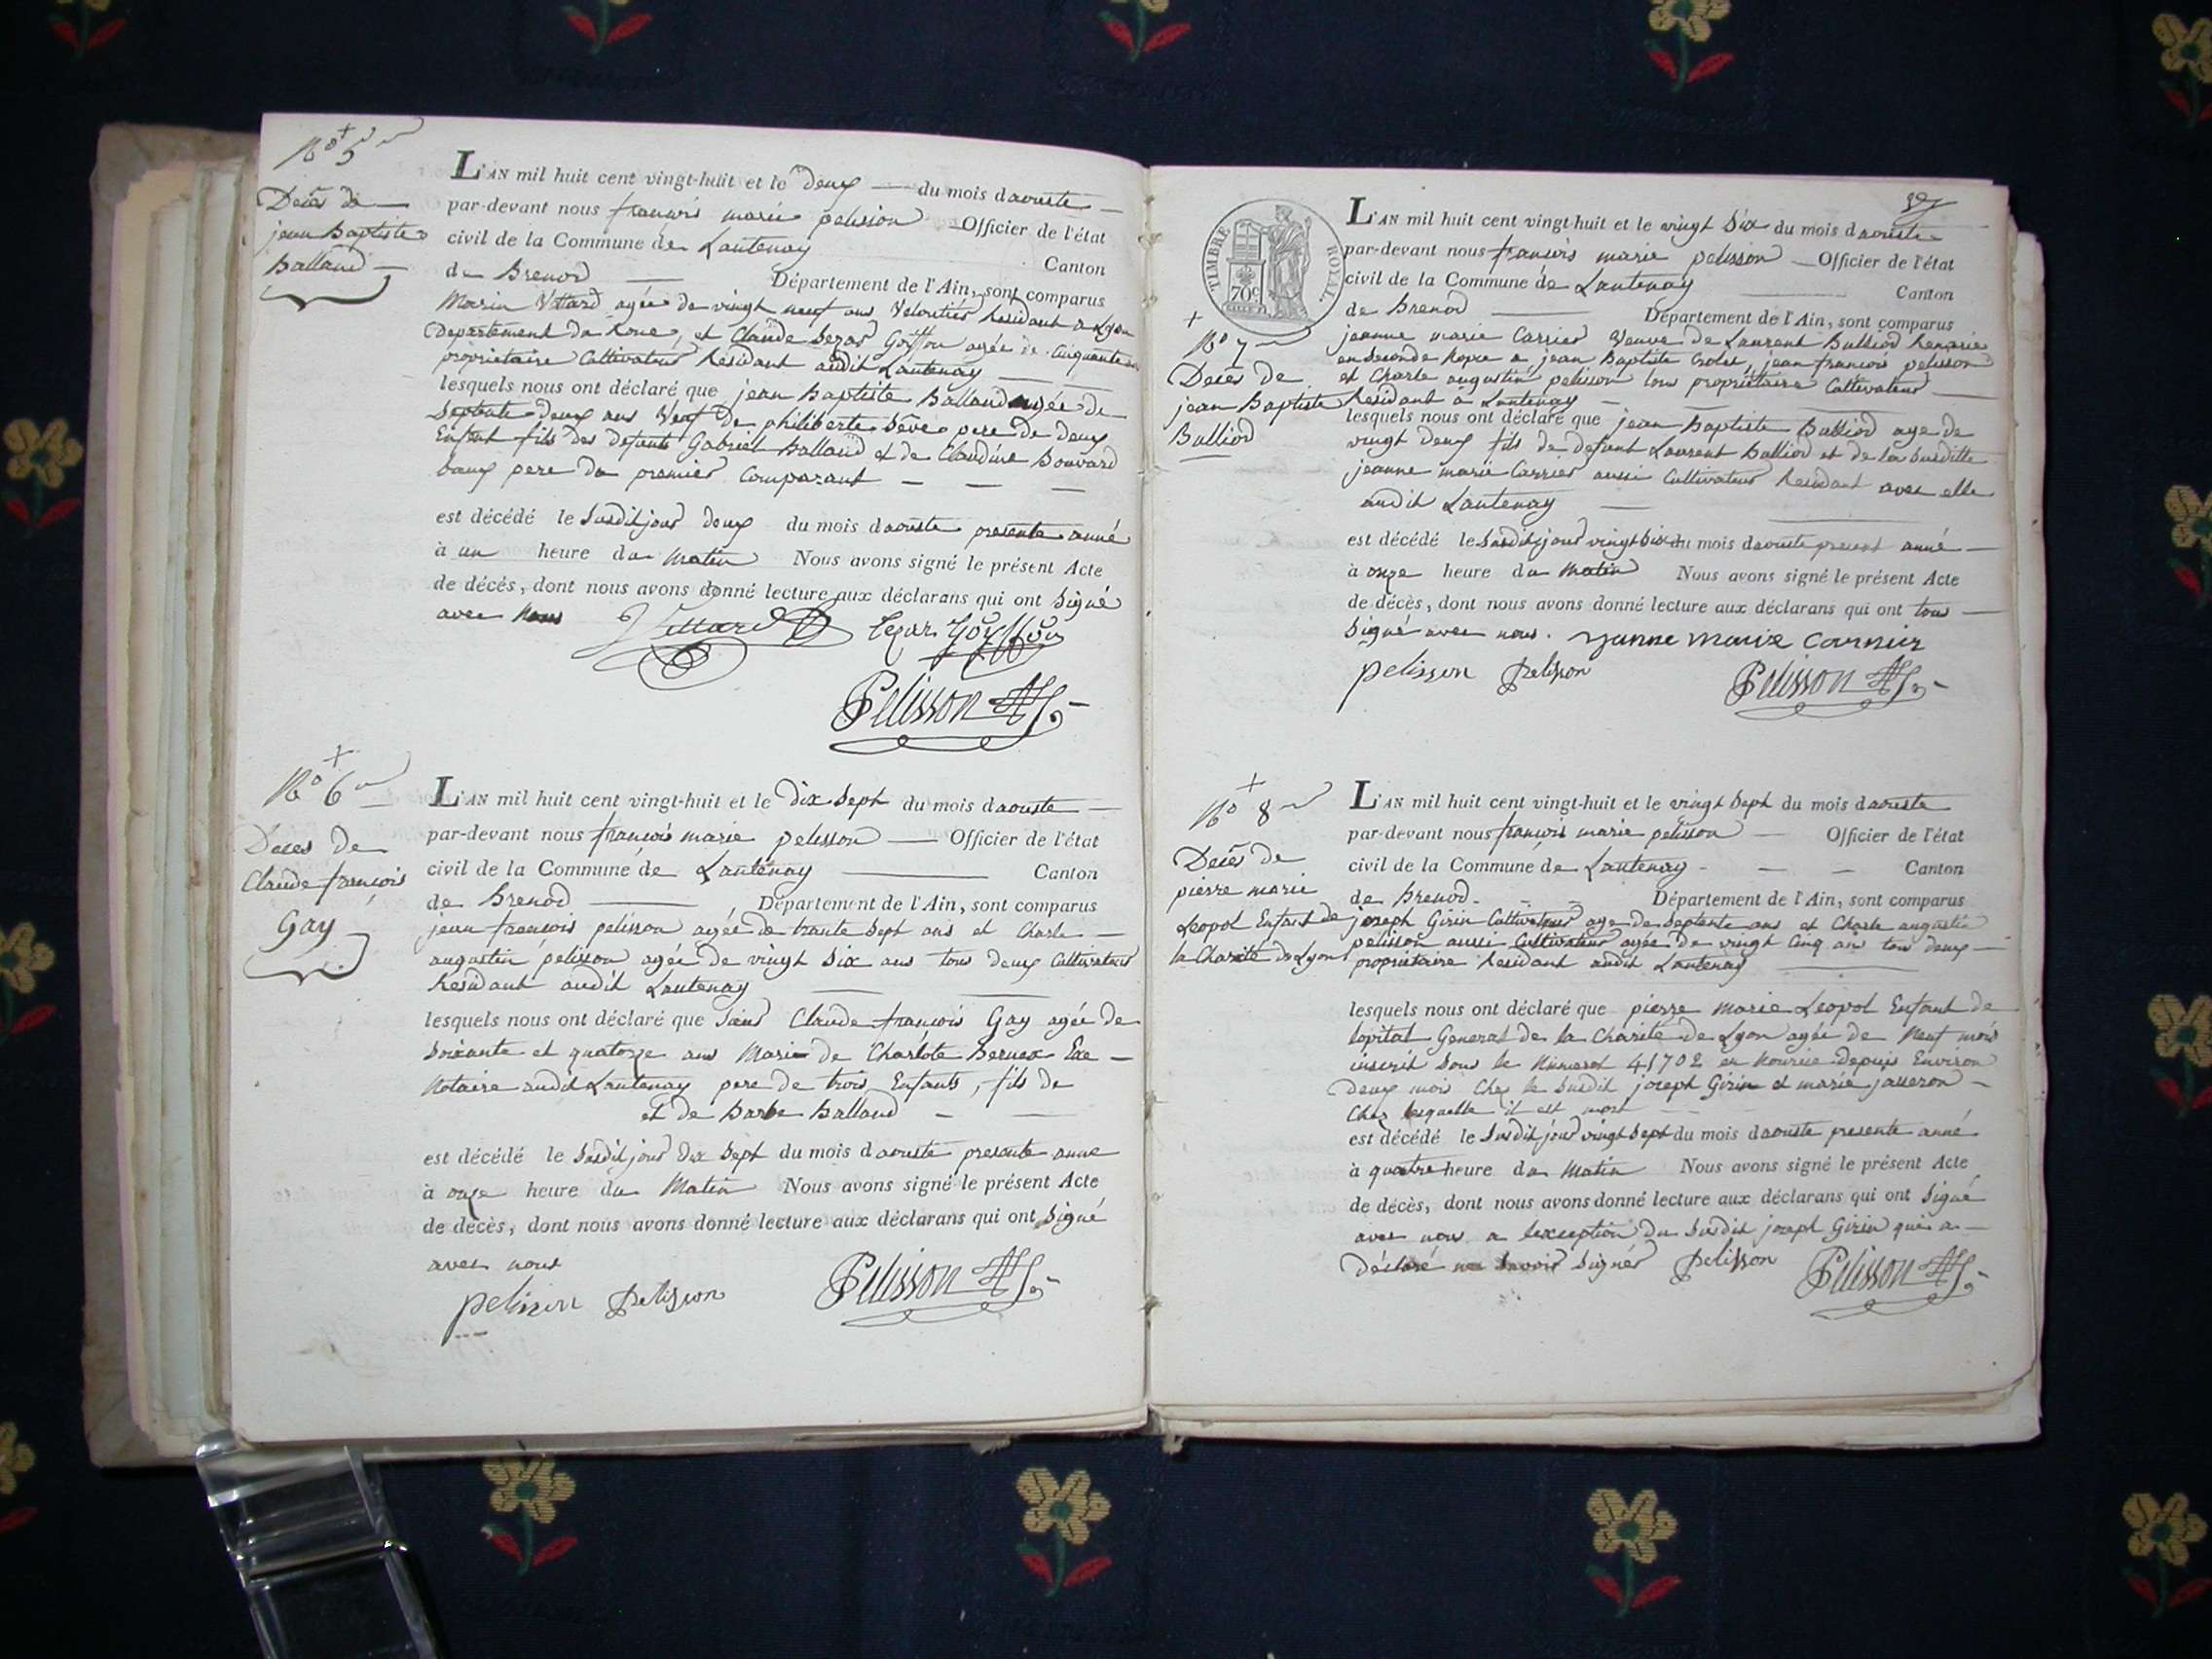 No 5
Décès de
jean Baptiste
Balland
L'AN mil huit cent vingt-huit et le deux du mois daouste
par-devant nous françois marie pelission Officier de l'état
civil de la Commune de Lantenay Canton
de Brenod Département de l'Ain, sont comparus
Marin Vittard agée de vingt neuf ans Veloutier Residant a Lyon
Departement du Rone, et Claude Sezar Goiffon agée de Cinquante
proprietaire Cultivateur Residant audit Lantenay
lesquels nous ont déclaré que jean Baptiste Balland agée de
Septente deux ans Veuf de philiberte Sève pere de deux
Enfent fils des defunts Gabriel Balland et de Claudine Bouvard
baux pere du premier Comparant
est décédé le Susdit jour deux du mois daouste presente anné
à un heure du Matin Nous avons signé le présent Acte
de décès, dont nous avons donné lecture aux déclarans qui ont Signé
avec Nous Vittard Cezar Goyffon
Pelisson
No 6
Deces de
Claude françois
Gay
L'AN mil huit cent vingt-huit et le Dix Sept du mois daouste
par-devant nous françois marie pelisson Officier de l'état
civil de la Commune de Lantenay Canton
de Brenod Département de l'Ain, sont comparus
jean françois pelisson agée de trante Sept ans et Charle
augustin pelisson agée de vingt Six ans tous deux Cultivateur
Residant audit Lantenay
lesquels nous ont déclaré que Sieur Claude françois Gay agée de
Soixante et quatorze ans Marie de Charlote Bernex Exe
Notaire audit Lantenay pere de trois Enfants, fils de
et de Barbe Balland
est décédé le Susdit jour Dix Sept du mois daouste presante anne
à onze heure du Matin Nous avons signé le présent Acte
de décès, dont nous avons donné lecture aux déclarans qui ont Signé
avec nous
pelisson Pelisson Pelisson
TIMBRE ROYAL
70c
No 7
Decès de
jean Baptiste
Balliod
L'AN mil huit cent vingt-huit et le vingt Six du mois daouste
par-devant nous françois marie pelisson Officier de l'état
civil de la Commune de Lantenay Canton
de Brenod Département de l'Ain, sont comparus
jeanne marie Carrier Veuve de Laurent Balliod Remariée
en Seconde Nopce a jean Baptiste jean françois pelisson
et Charle augustin pelisson tous propriétaire Cultivateur
Residant à Lantenay
lesquels nous ont déclaré que jean Baptiste Balliod age de
vingt deux fils de defunt Laurent Balliod et de la Susditte
jeanne marie Carrier aussi Cultivateur Residant avec elle
audit Lantenay
est décédé le Susdit jour vingt Six du mois daouste present anné
à onze heure du Matin Nous avons signé le présent Acte
de décès, dont nous avons donné lecture aux déclarans qui ont tous
Signé avec nous. Janne Marie Carrier
pelisson Pelisson Pelisson
No 8
Décès de
pierre marie
Leopol Enfant de
la Charité de Lyon
L'AN mil huit cent vingt-huit et le vingt Sept du mois daouste
par-devant nous françois marie pelisson Officier de l'état
civil de la Commune de Lantenay Canton
de Brenod Département de l'Ain, sont comparus
joseph Girin Cultivateur age de Septente ans et Charle augustin
pelisson aussi Cultivateur agée de vingt Cinq ans tous deux
proprietaire Residant audit Lantenay
lesquels nous ont déclaré que pierre marie Leopol Enfant de
lopital General de la Charité de Lyon agée de Neuf mois
inscrit Sous le Numerot 41702 en Nourice depuis Environ
deux mois Chez le Susdit joseph Girin et marie jasseron
Chez lesquelle il est mort
est décédé le Susdit jour vingt Sept du mois daouste presente anné
à quatre heure du Matin Nous avons signé le présent Acte
de décès, dont nous avons donné lecture aux déclarans qui ont Signé
avec nous a lexception du Susdit joseph Girin qui a
Déclaré ne Savoir Signer Pelisson Pelisson